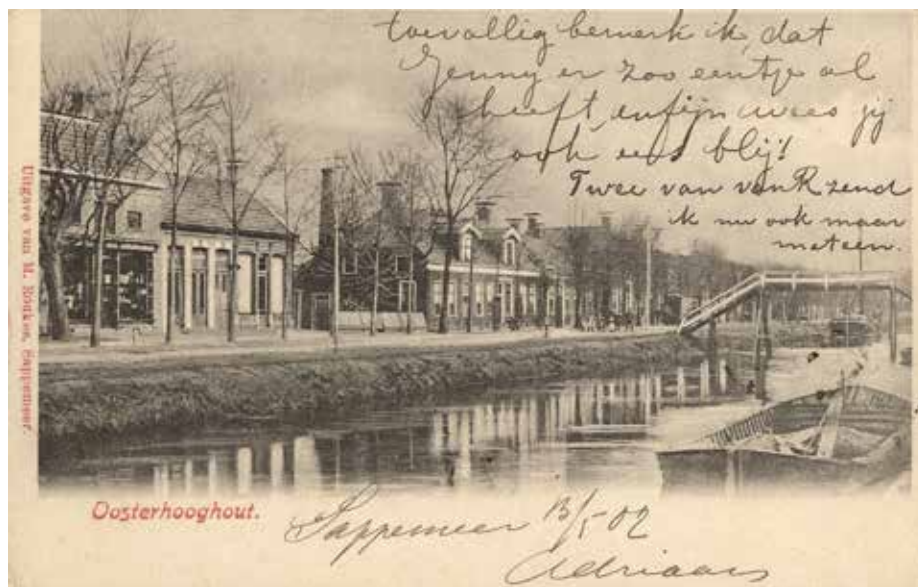 toevallig bemerk ik, dat
Jenny er zoo eentje al
heeft, enfijn wees jij
ook eens blij!
Twee van van R. zend
ik nu ook maar
meteen.
Uitgave van M. Sappemeer.
Oosterhooghout.
Sappemeer 13/5 02
Adriaans